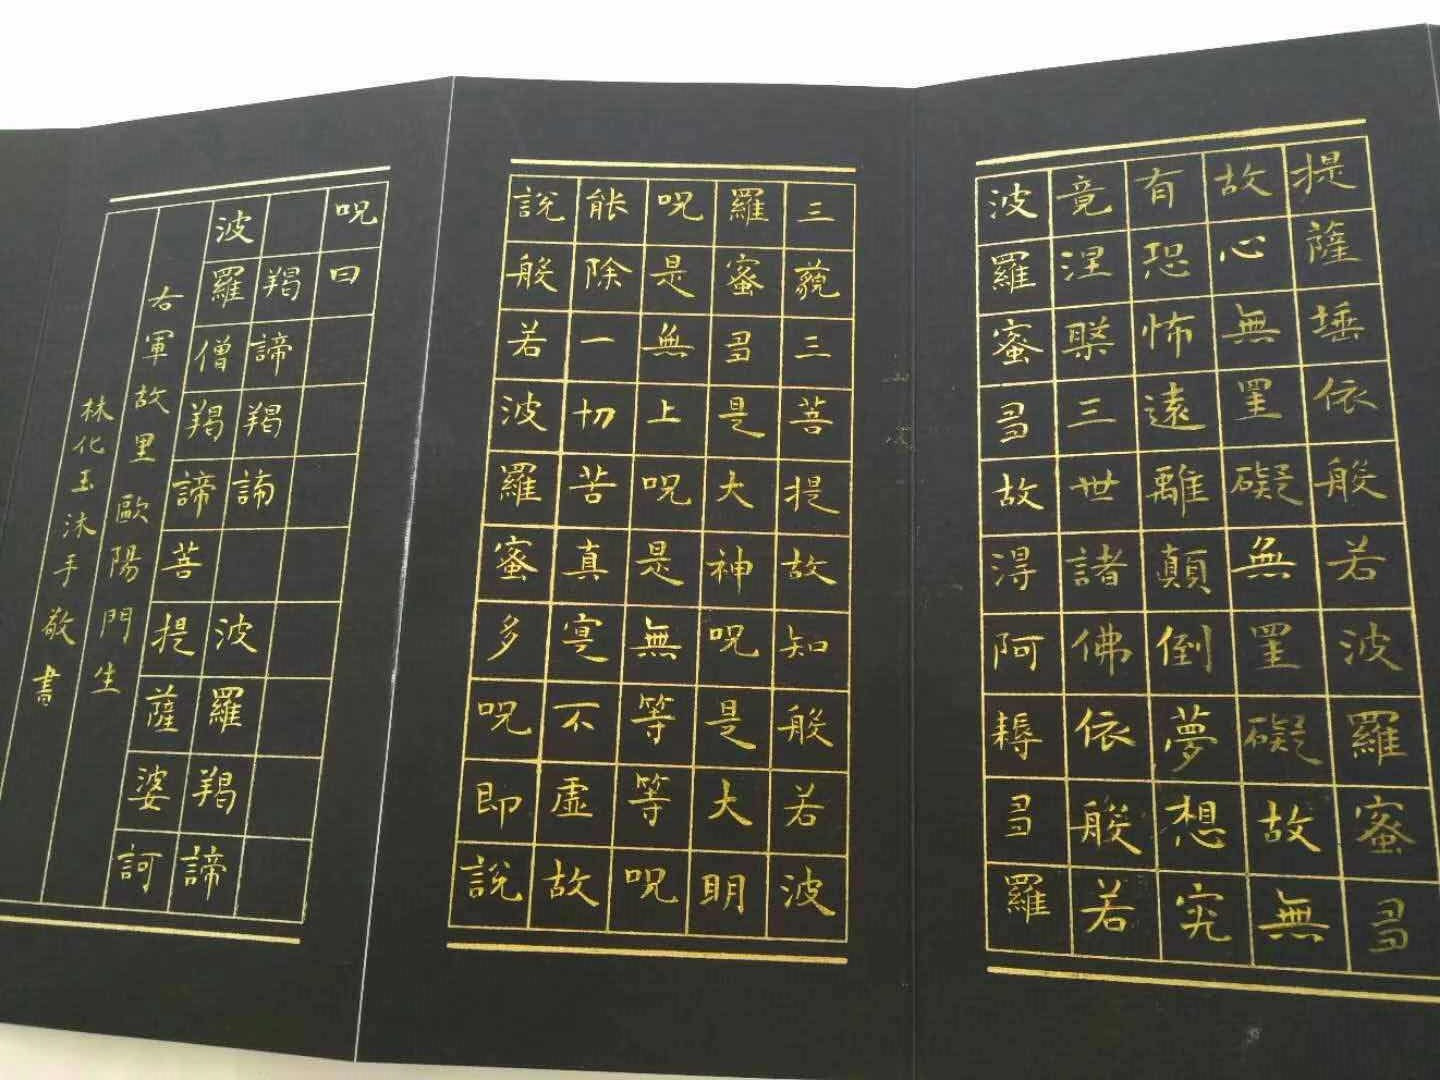 提薩埵依般若波羅蜜多
故心無罣礙無罣礙故無
有恐怖遠離顛倒夢想究
竟涅槃三世諸佛依般若
波羅蜜多故得阿耨多羅
三藐三菩提故知般若波
羅蜜多是大神呪是大明
呪是無上呪是無等等呪
能除一切苦真寔不虛故
說般若波羅蜜多呪即說
呪曰
羯諦羯諦 波羅羯諦
波羅僧羯諦菩提薩婆訶
右軍故里歐陽門生
林化玉沐手敬書